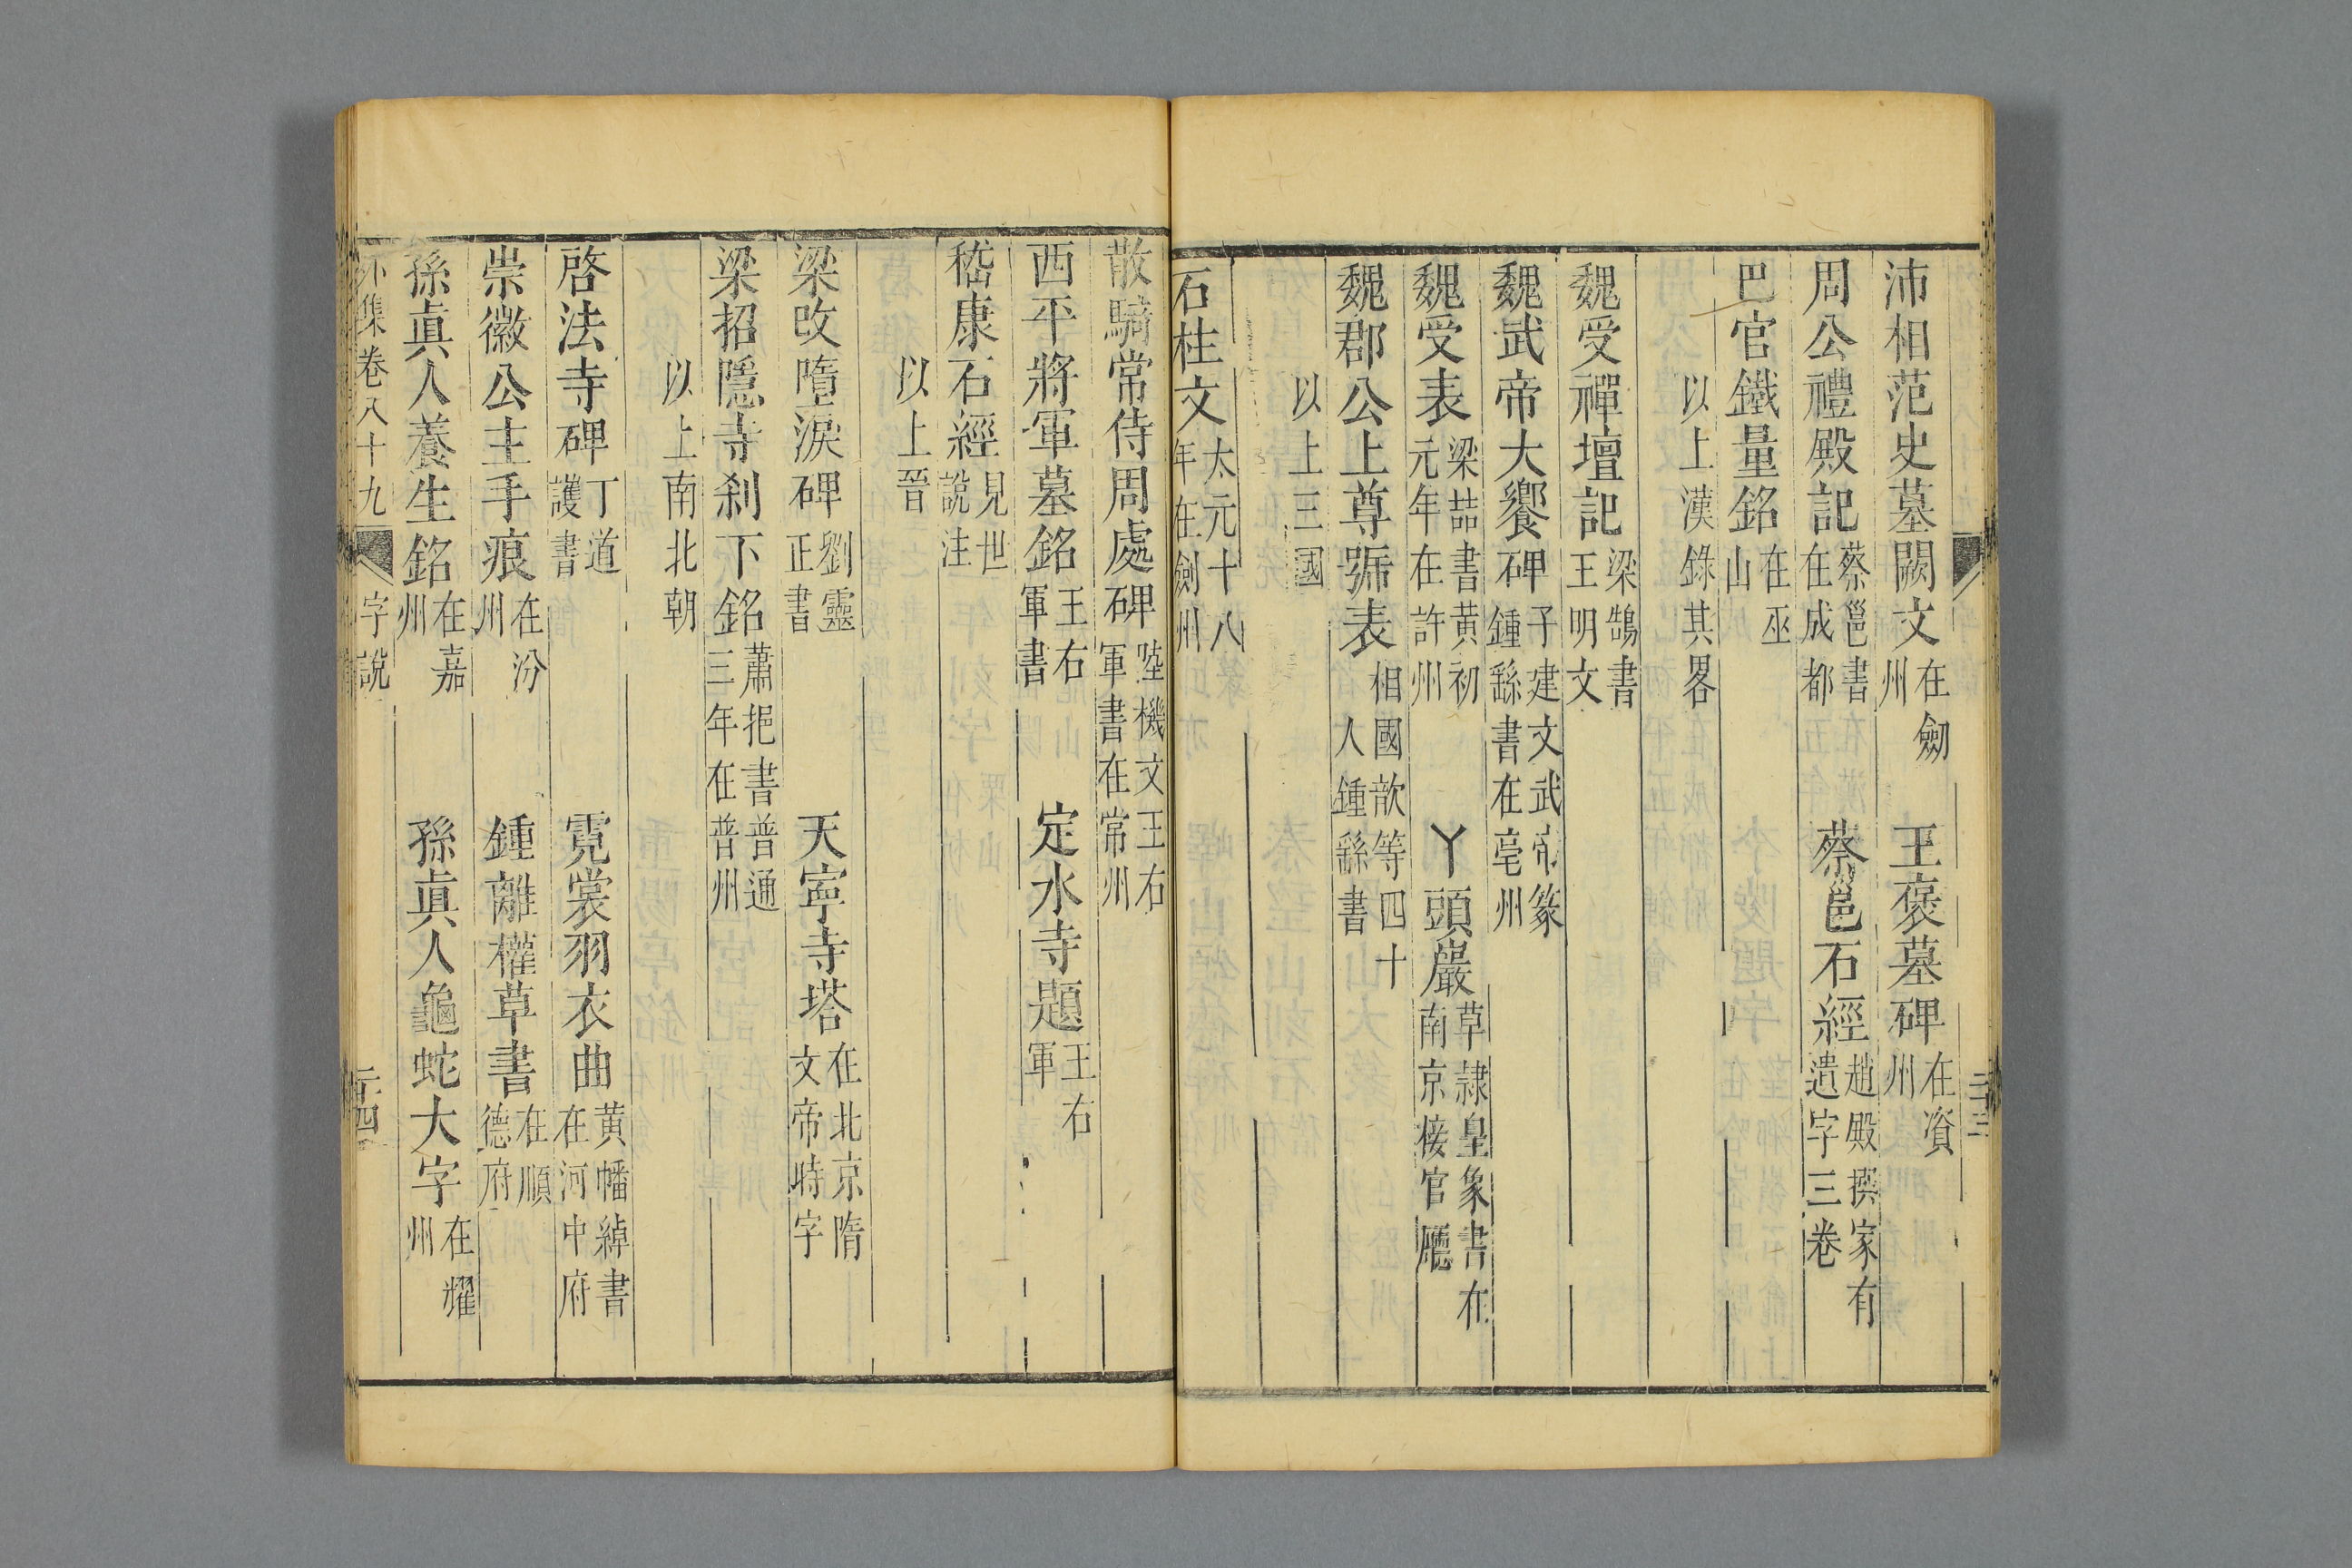 沛相范史墓闕文在劒州 王褒墓碑在資州
周公禮殿記蔡邕書在成都 蔡邕石經趙殿撰家有遺字三卷
巴官鐵量銘在巫山
以上漢錄其畧
魏受禪壇記梁鵠書王明文
魏武帝大饗碑子建文武帝篆鍾繇書在亳州
魏受表梁喆書黄初元年在許州 丫頭巖草隷皇象書在南京倿官廳
魏郡公上尊號表相國歆等四十人鍾繇書
以上三國
石柱文太元十八年在劍州
散騎常侍周處碑陸機文王右軍書在常州
西平將軍墓銘王右軍書 定水寺題王右軍
嵇康石經見世說注
以上晉
梁改墮淚碑劉靈正書 天寧寺塔在北京隋文帝時字
梁招隱寺刹下銘蕭挹書普通三年在普州
以上南北朝
啓法寺碑丁道護書 霓裳羽衣曲黄幡綽書在河中府
崇徽公主手痕在汾州 鍾離權草書在順德府
孫眞人養生銘在嘉州 孫眞人龜蛇大字在耀州
外集卷八十九 字說 二十四